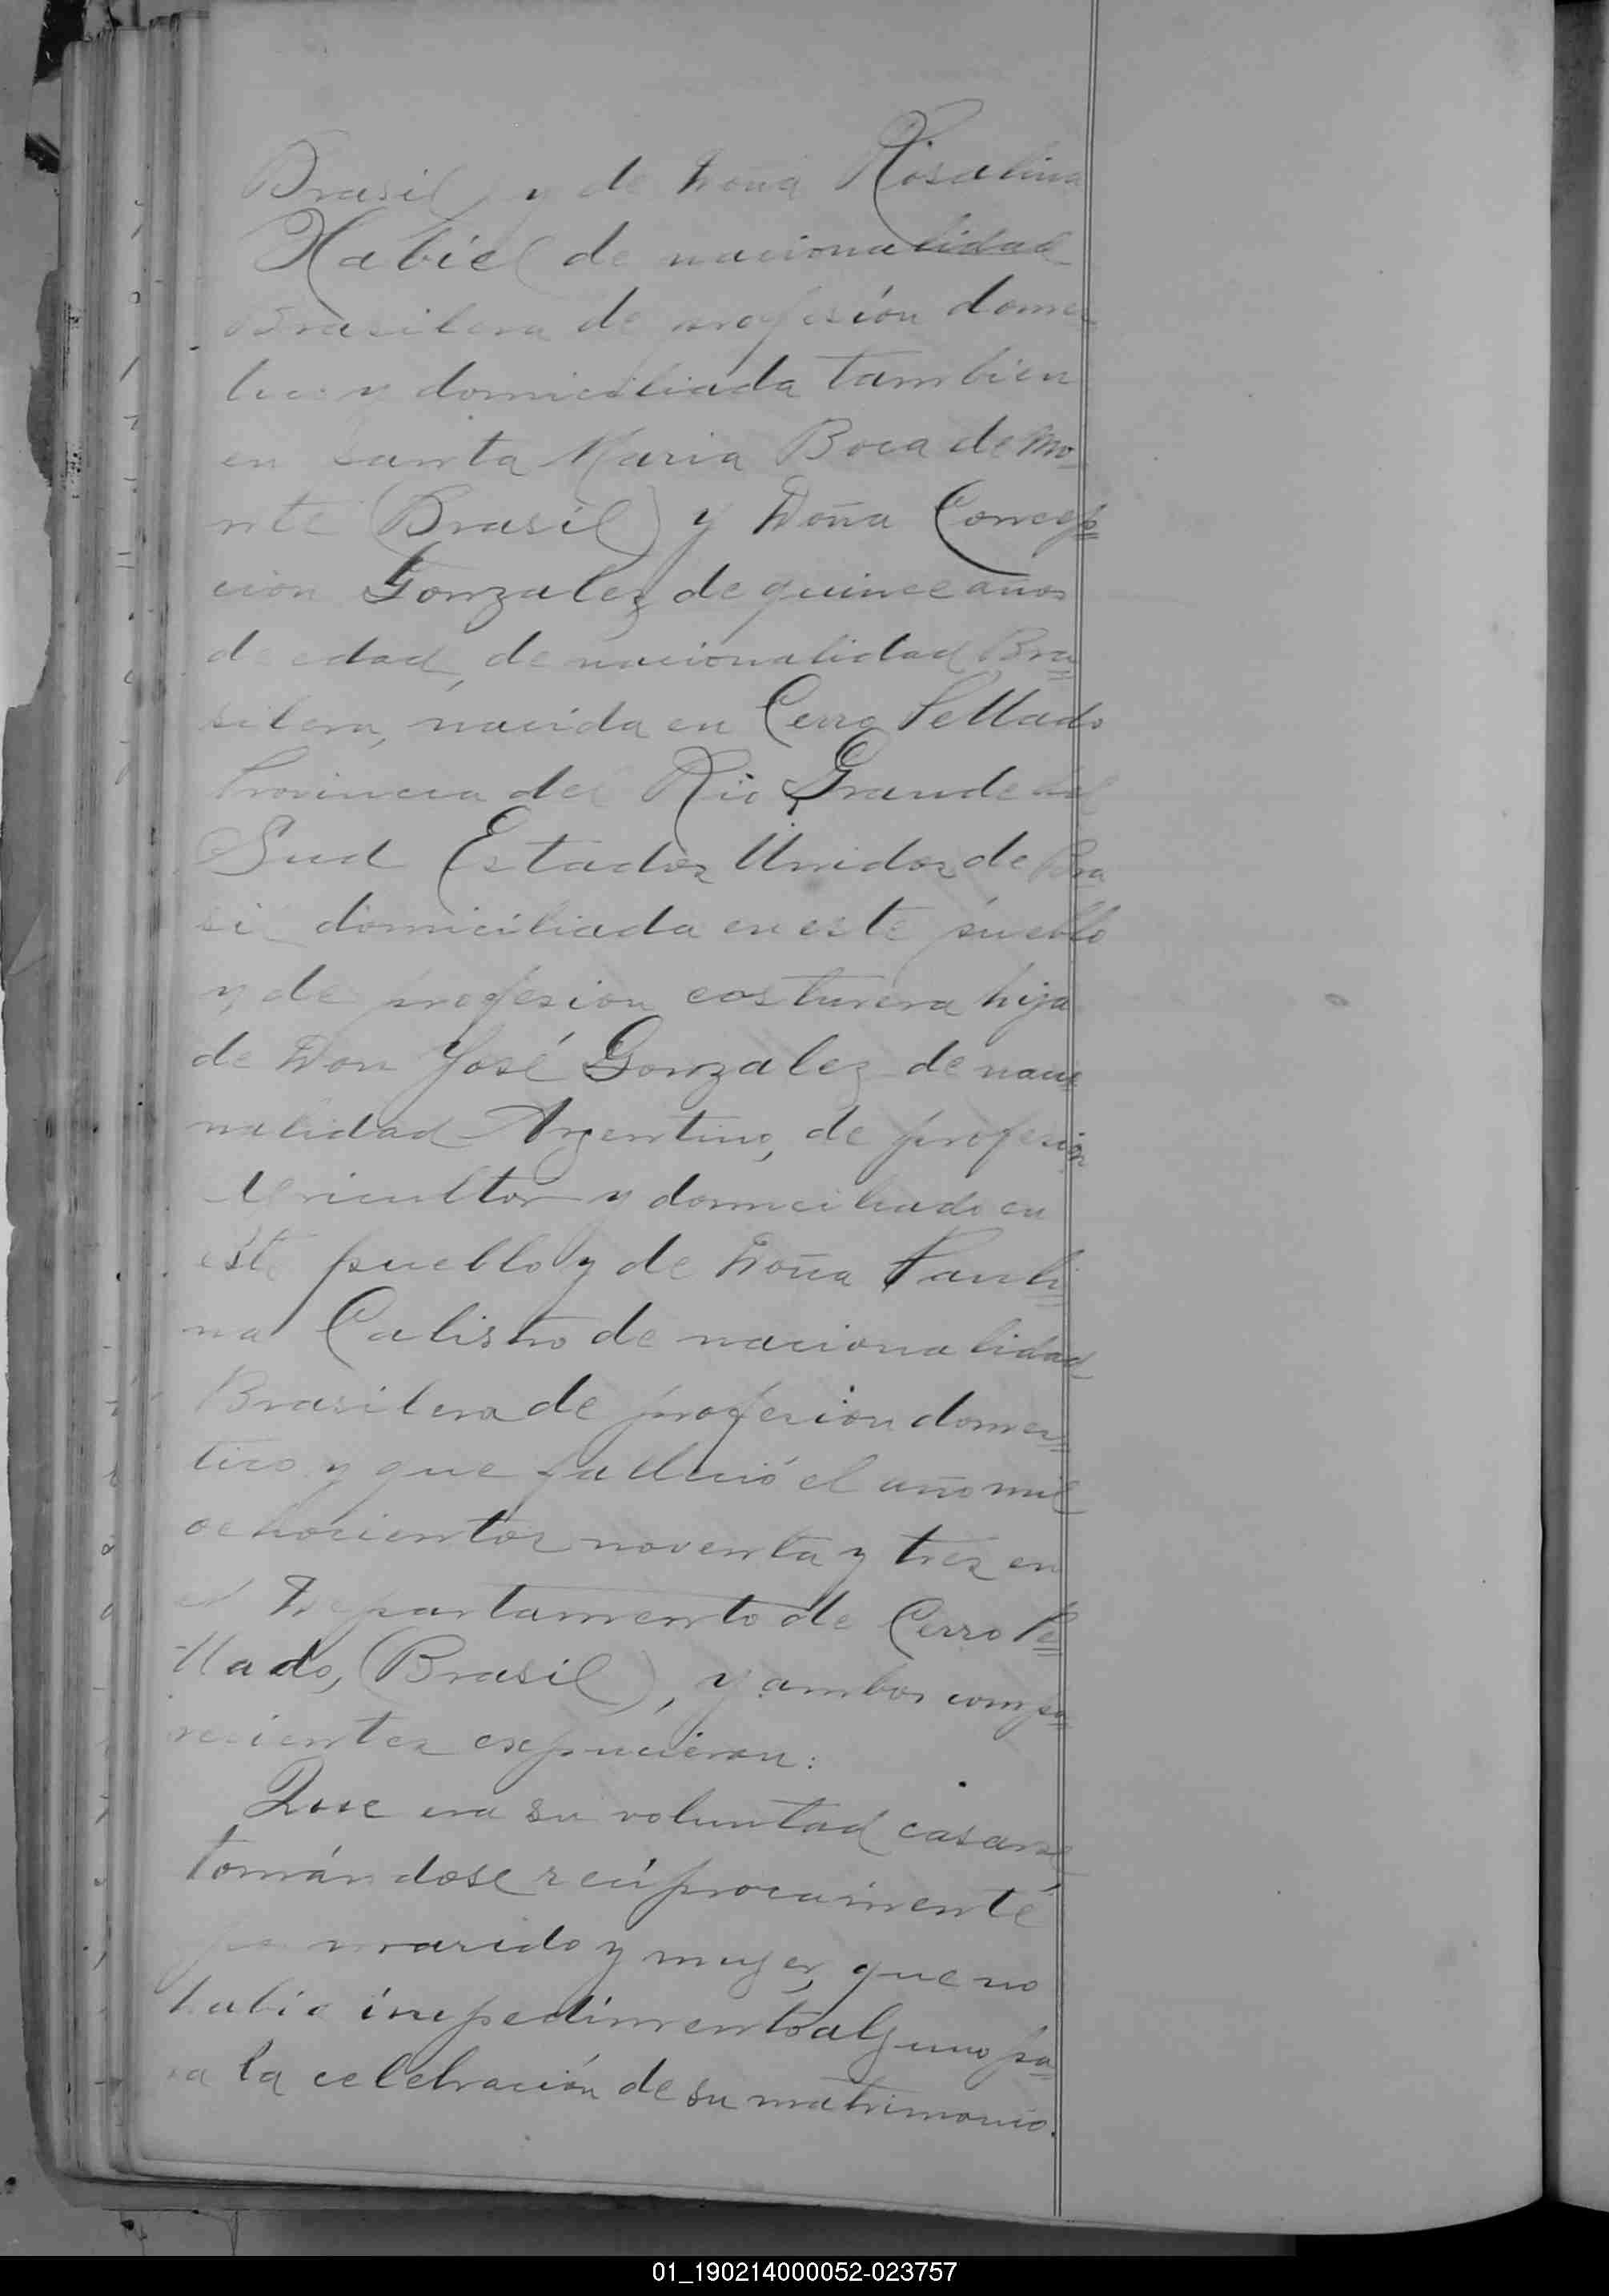 Brasil, y de Doña Rosalina
Xabiel de nacionalidad
Brasilera de profesión domes-
tico y domiciliada tambien
en Santa Maria Boca de Mo-
nte (Brasil) y Doña Concep=
cion Gonzalez de quince años
de edad, de nacionalidad Bra=
silera, nacida en Cerro Pellado
Provincia del Rio Grande del
Sud Estados Unidos de Bra
sil domiciliada en este pueblo
y de profesion costurera hija
de Don José Gonzalez de nacio=
nalidad Argentino, de profesion
Agricultor y domiciliado en
este pueblo y de Doña Pauli=
na Calistro de nacionalidad
Brasilera de profesion domes=
tico y que falleció el año mil
ochocientos noventa y tres en
el Departamento de Cerro Pe=
llado, (Brasil), y ambos compa=
recientes expucieron:
Que era su voluntad casarse,
tomándose reciprocamente
por marido y mujer, que no
habia impedimento alguno pa=
ra la celebración de su matrimonio.
01_190214000052-023757